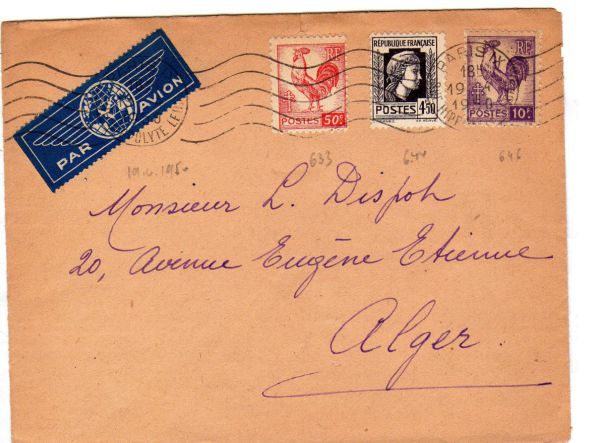 PAR AVION
RF
POSTES 50c
RÉPUBLIQUE FRANÇAISE
POSTES 4f50
RF
POSTES 10F
PARIS IX
18H
19
633
644
646
Monsieur L. Dispoh
20, Avenue Eugène Etienne
Alger.